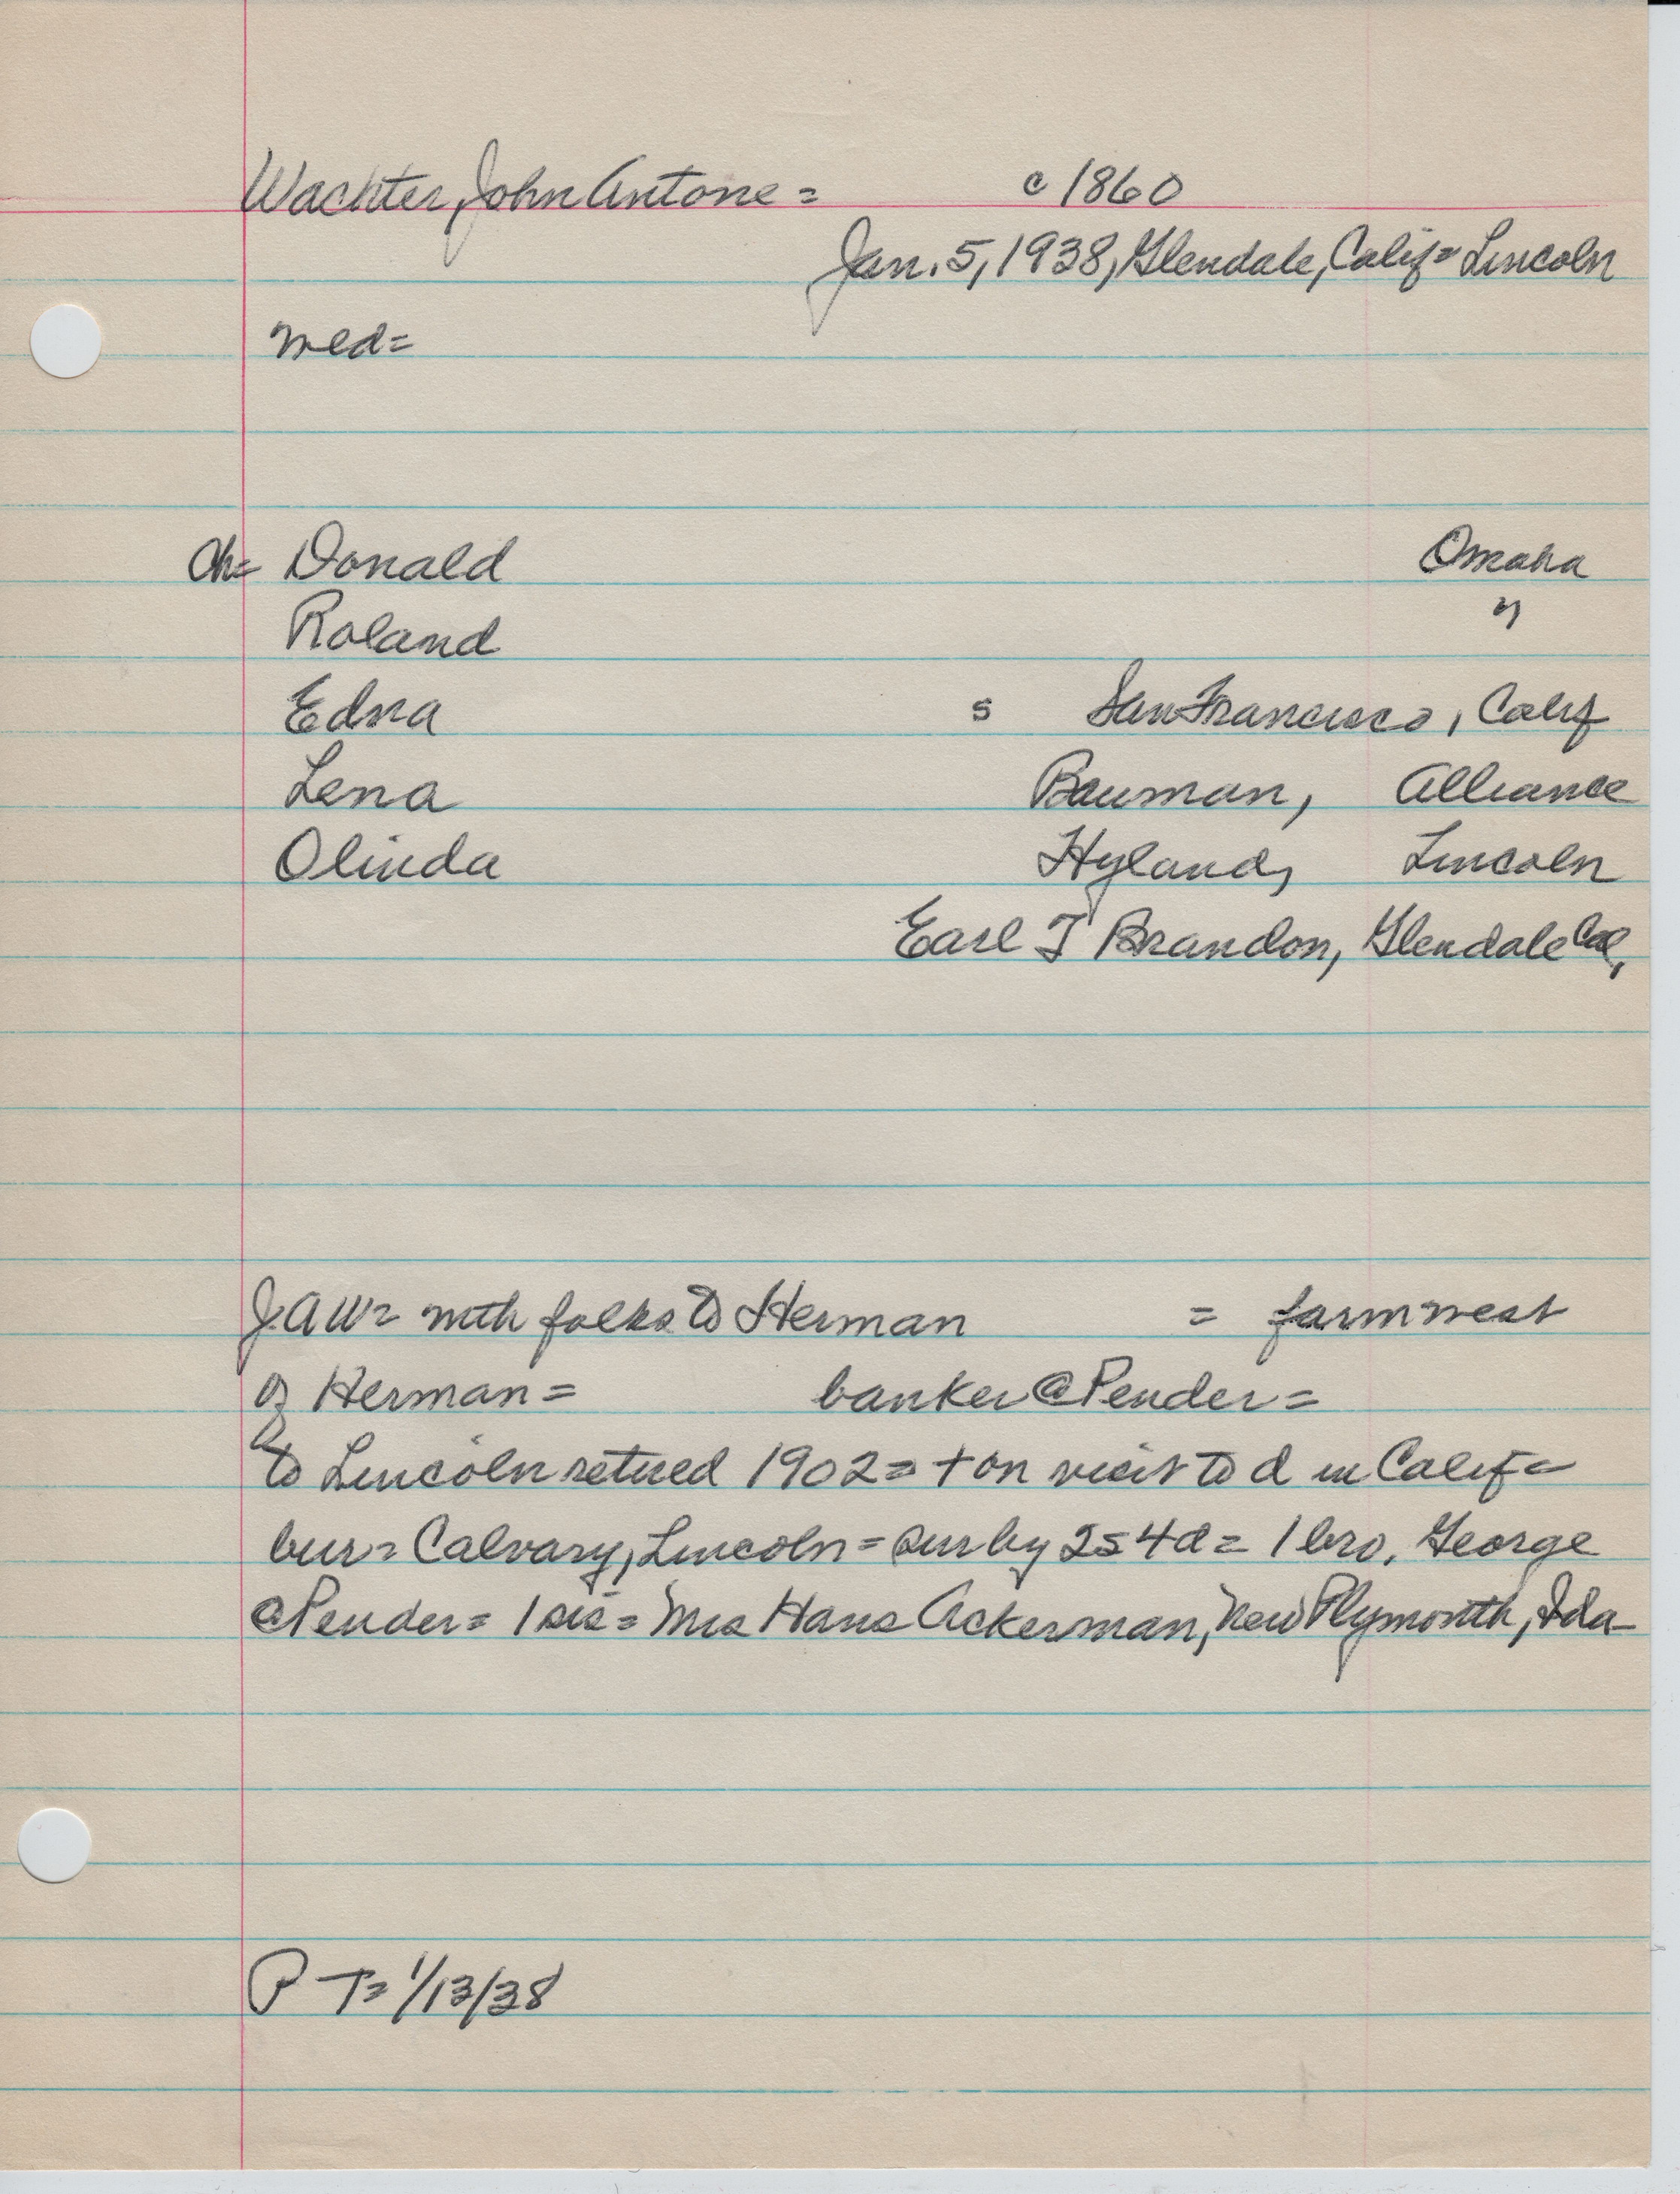 Wachter, John Antone = c 1860
Jan. 5, 1938, Glendale, Calif = Lincoln
med=
Ch= Donald Omaha
Roland "
Edna s San Francisco, Calif
Lena Bauman, Alliance
Olinda Hyland, Lincoln
Earl T Brandon, Glendale Cal,
JAW= with folks to Herman = farm west
of Herman = banker @ Pender =
to Lincoln retired 1902 = + on visit to d in Calif =
bur = Calvary, Lincoln = sur by 2s 4d = 1 bro, George
@ Pender = 1 sis = Mrs Hans Ackerman, New Plymouth, Ida
P T= 1/13/38